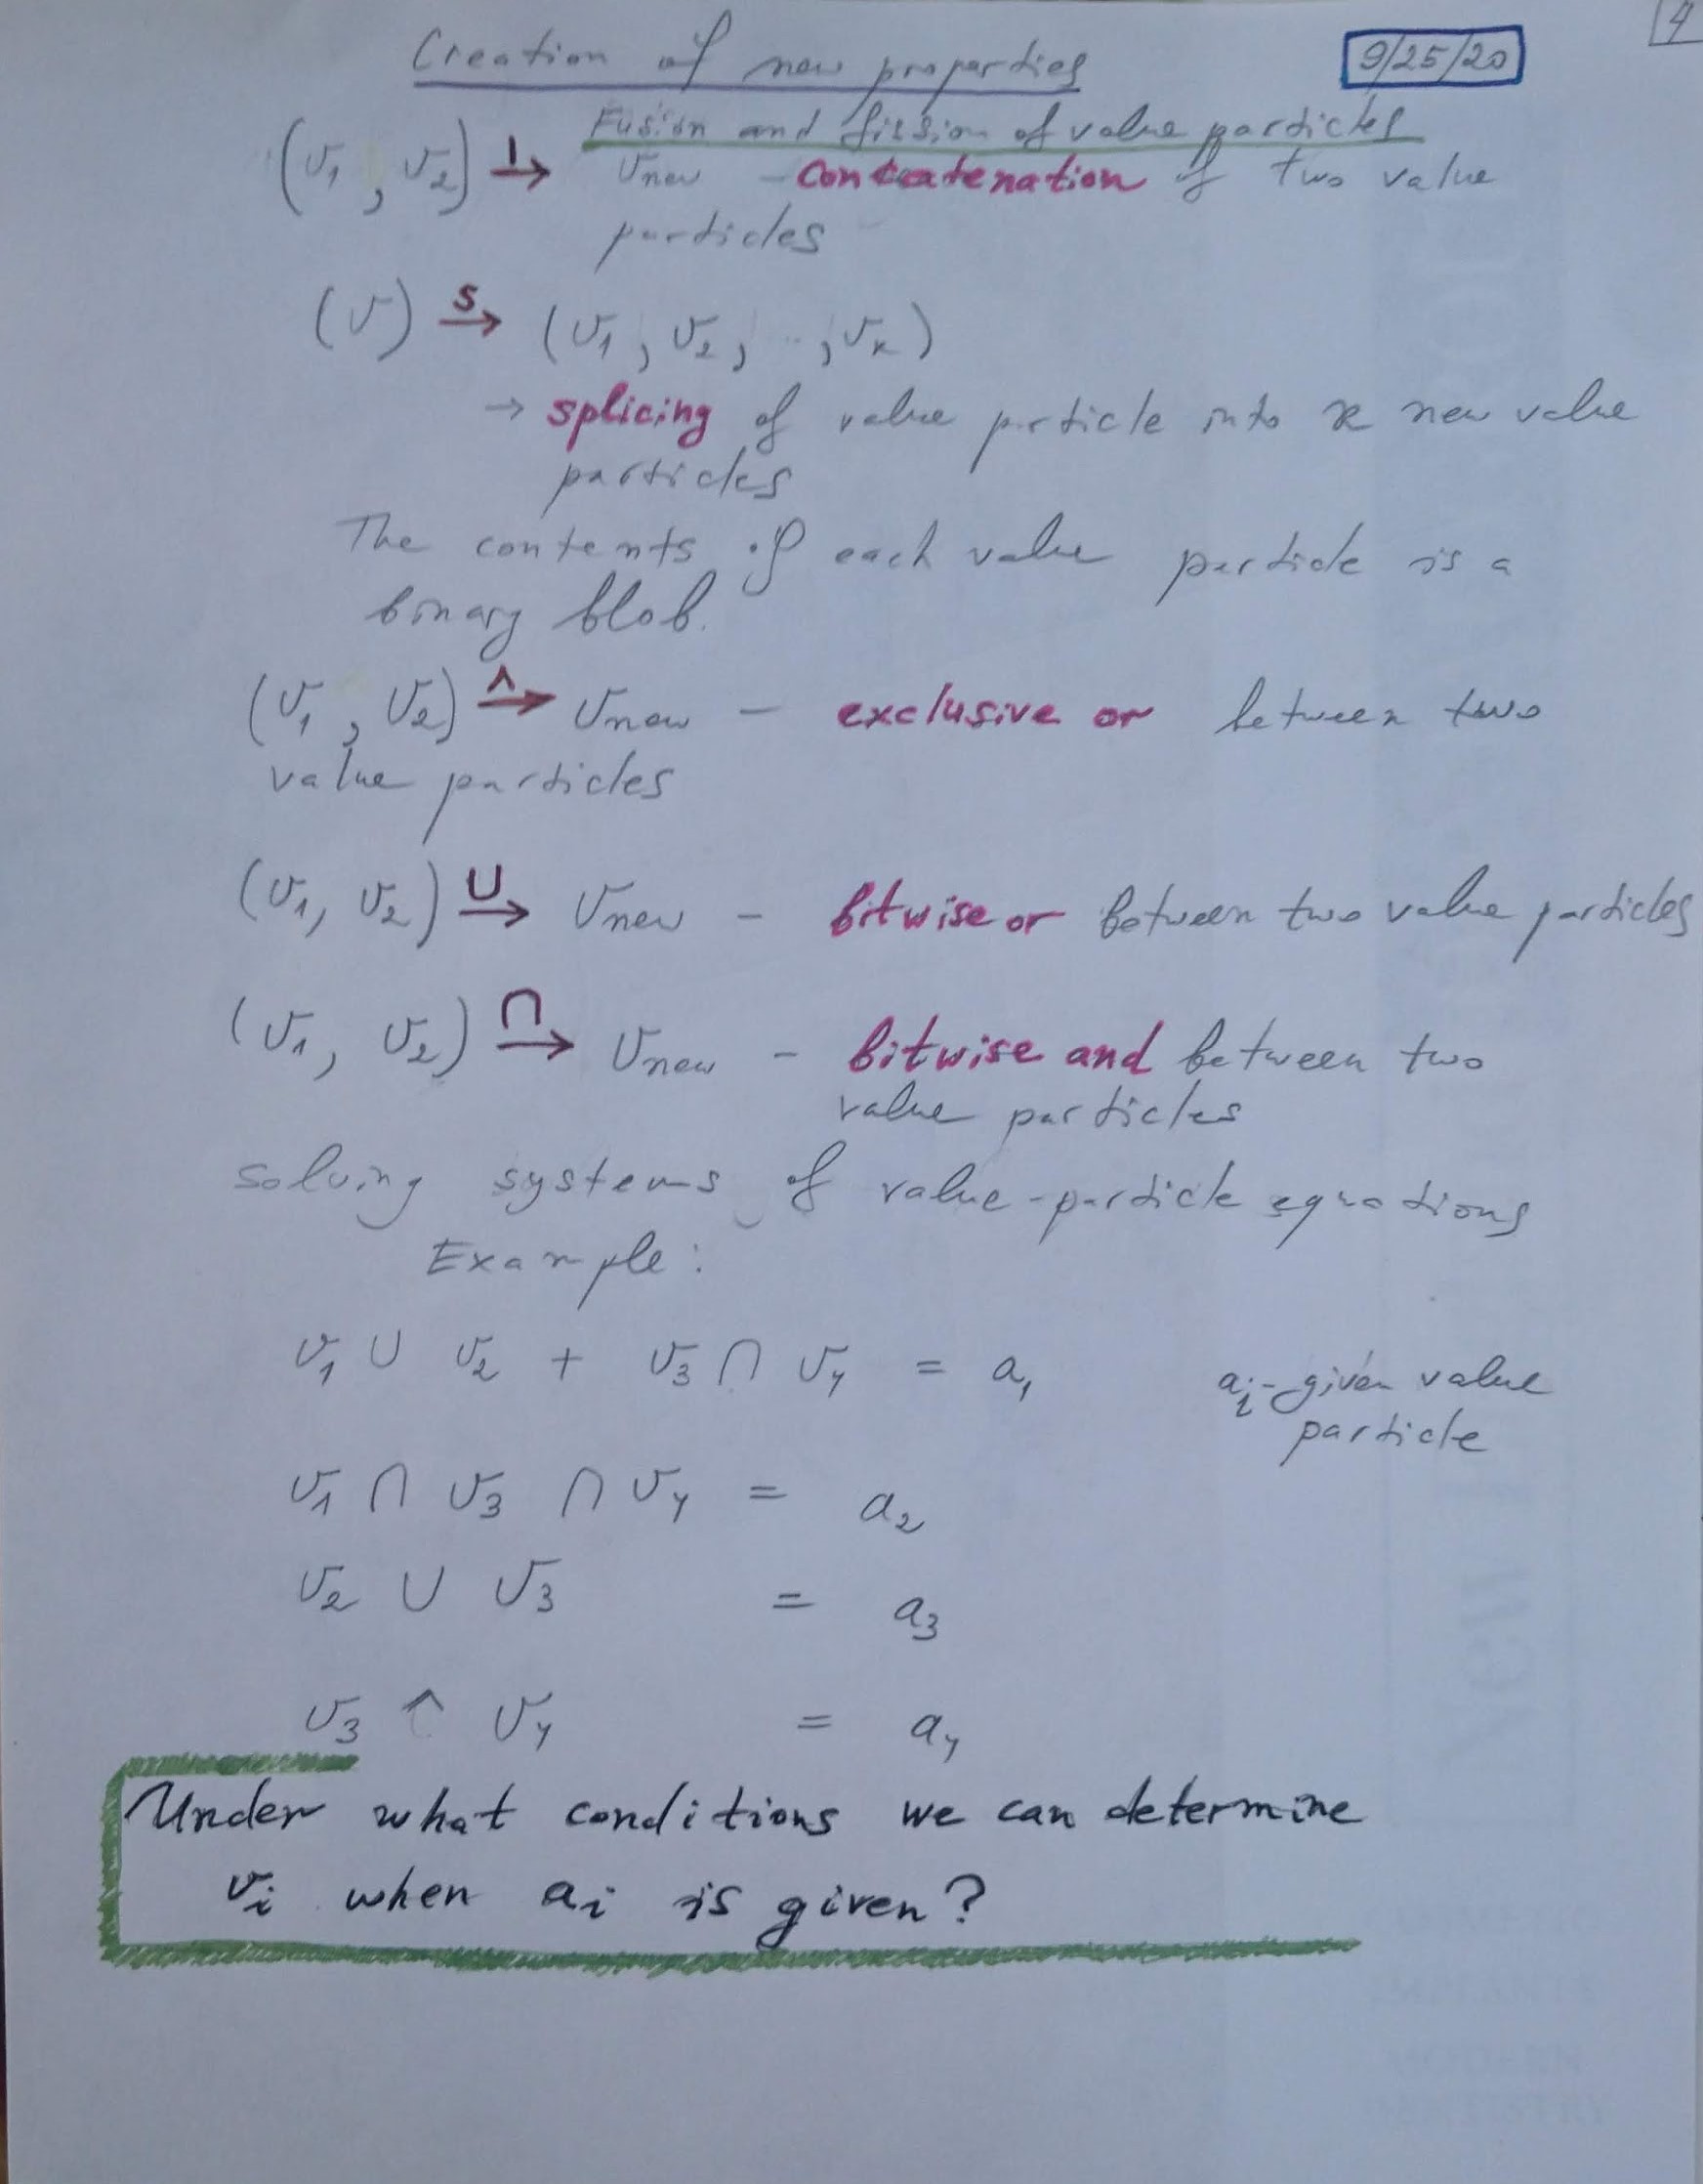 4
Creation of new properties
9/25/20
Fusion and fission of value particles
(v₁, v₂) ⊥→ vnew - concatenation of two value
particles
(v) S→ (v₁, v₂, ..., vₖ)
→ splicing of value particle into k new value
particles
The contents of each value particle is a
binary blob.
(v₁, v₂) ^→ vnew - exclusive or between two
value particles
(v₁, v₂) ∪→ vnew - bitwise or between two value particles
(v₁, v₂) ∩→ vnew - bitwise and between two
value particles
solving systems of value-particle equations
Example:
v₁ ∪ v₂ + v₃ ∩ v₄ = a₁
aᵢ - given value
particle
v₁ ∩ v₃ ∩ v₄ = a₂
v₂ ∪ v₃ = a₃
v₃ ^ v₄ = a₄
Under what conditions we can determine
vᵢ when aᵢ is given?